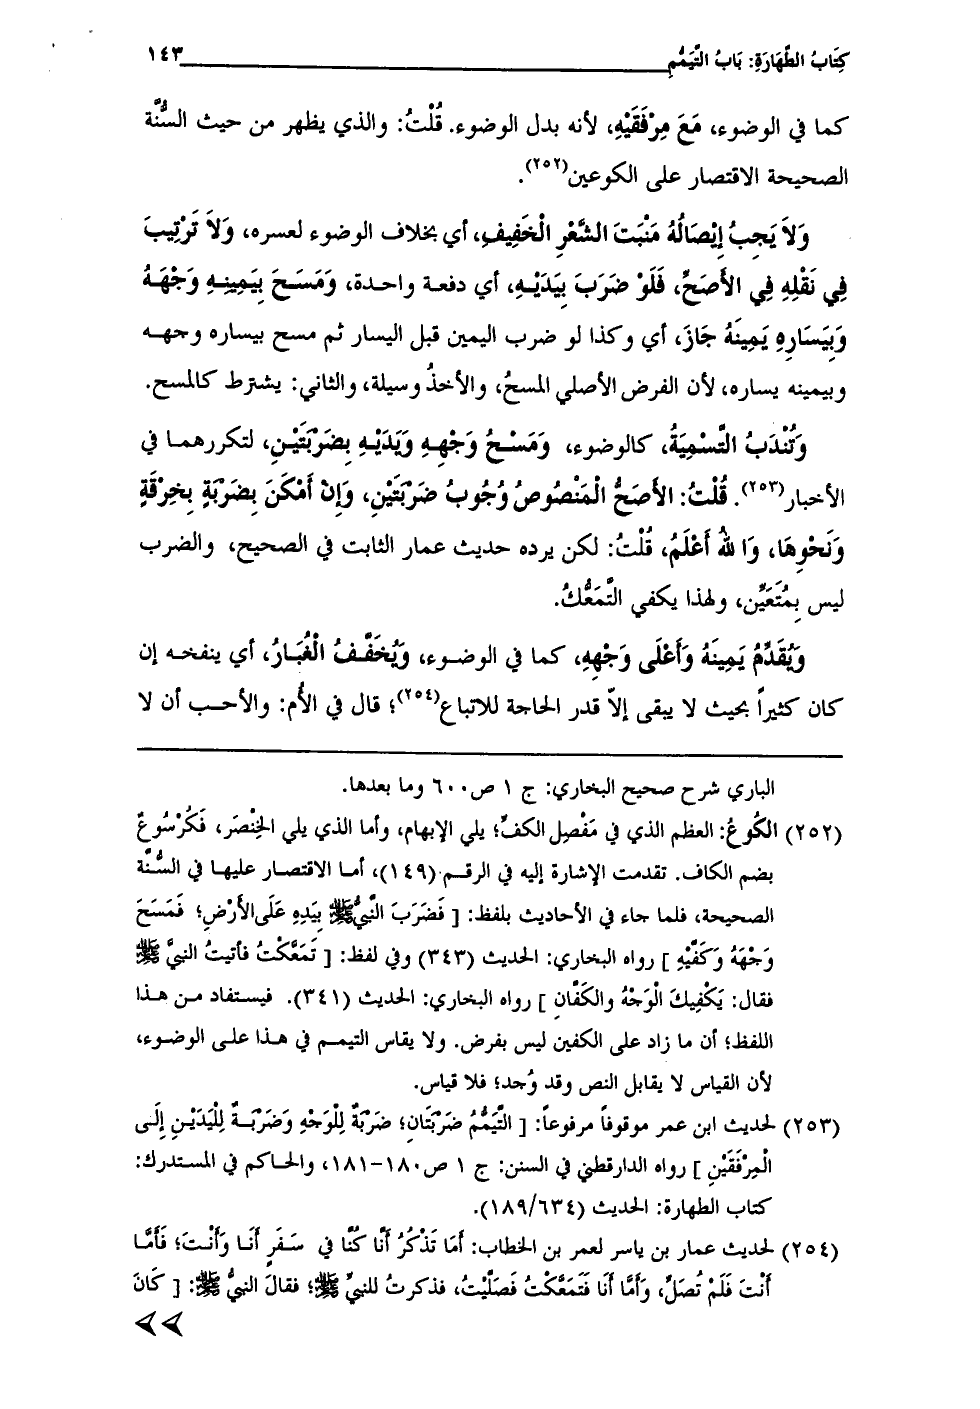 كِتَابُ الطَّهَارَةِ: بَابُ التَّيَمُّمِ ١٤٣
كما في الوضوء، مَعَ مِرْفَقَيْهِ، لأنه بدل الوضوء. قُلْتُ: والذي يظهر من حيث السُّنَّة
الصحيحة الاقتصار على الكوعين(٢٥٢).
وَلاَ يَجِبُ إِيْصَالُهُ مَنْبَتَ الشَّعْرِ الْخَفِيفِ، أي بخلاف الوضوء لعسره، وَلاَ تَرْتِيبَ
فِي نَقْلِهِ فِي الأَصَحِّ، فَلَوْ ضَرَبَ بِيَدَيْهِ، أي دفعة واحدة، وَمَسَحَ بِيَمِينِهِ وَجْهَهُ
وَبِيَسَارِهِ يَمِينَهُ جَازَ، أي وكذا لو ضرب اليمين قبل اليسار ثم مسح بيساره وجهه
وبيمينه يساره، لأن الفرض الأصلي المسحُ، والأخذُ وسيلة، والثاني: يشترط كالمسح.
وَتُنْدَبُ التَّسْمِيَةُ، كالوضوء، وَمَسْحُ وَجْهِهِ وَيَدَيْهِ بِضَرْبَتَيْنِ، لتكررهما في
الأخبار(٢٥٣). قُلْتُ: الأَصَحُّ الْمَنْصُوصُ وُجُوبُ ضَرْبَتَيْنِ، وَإِنْ أَمْكَنَ بِضَرْبَةٍ بِخِرْقَةٍ
وَنَحْوِهَا، وَا للهُ أَعْلَمُ، قُلْتُ: لكن يرده حديث عمار الثابت في الصحيح، والضرب
ليس بِمُتَعَيِّنٍ، ولهذا يكفي التَّمَعُّكُ.
وَيُقَدِّمُ يَمِينَهُ وَأَعْلَى وَجْهِهِ، كما في الوضوء، وَيُخَفِّفُ الْغُبَارُ، أي ينفخه إن
كان كثيراً بحيث لا يبقى إلاّ قدر الحاجة للاتباع(٢٥٤)؛ قال في الأُم: والأحب أن لا
الباري شرح صحيح البخاري: ج ١ ص٦٠٠ وما بعدها.
(٢٥٢) الكُوعُ: العظم الذي في مَفْصِل الكفِّ؛ يلي الإبهام، وأما الذي يلي الخِنْصَر، فَكُرْسُوعٌ
بضم الكاف. تقدمت الإشارة إليه في الرقم (١٤٩)، أما الاقتصار عليها في السُّنَّة
الصحيحة، فلما جاء في الأحاديث بلفظ: [ فَضَرَبَ النَّبِيُّ ﷺ بِيَدِهِ عَلَى الأَرْضِ؛ فَمَسَحَ
وَجْهَهُ وَكَفَّيْهِ ] رواه البخاري: الحديث (٣٤٣) وفي لفظ: [ تَمَعَّكْتُ فأتيتُ النبيَّ ﷺ
فقال: يَكْفِيكَ الْوَجْهُ والكَفَّانِ ] رواه البخاري: الحديث (٣٤١). فيستفاد من هذا
اللفظ؛ أن ما زاد على الكفين ليس بفرض. ولا يقاس التيمم في هذا على الوضوء،
لأن القياس لا يقابل النص وقد وُحد؛ فلا قياس.
(٢٥٣) لحديث ابن عمر موقوفاً مرفوعاً: [ التَّيَمُّمُ ضَرْبَتَانِ؛ ضَرْبَةٌ لِلْوَجْهِ وَضَرْبَةٌ لِلْيَدَيْنِ إِلَى
الْمِرْفَقَيْنِ ] رواه الدارقطني في السنن: ج ١ ص١٨٠-١٨١، والحاكم في المستدرك:
كتاب الطهارة: الحديث (١٨٩/٦٣٤).
(٢٥٤) لحديث عمار بن ياسر لعمر بن الخطاب: أَمَا تَذْكُرُ أَنَّا كُنَّا فِي سَفَرٍ أَنَا وَأَنْتَ؛ فَأَمَّا
أَنْتَ فَلَمْ تُصَلِّ، وَأَمَّا أَنَا فَتَمَعَّكْتُ فَصَلَّيْتُ، فذكرتُ للنبيِّ ﷺ؛ فقالَ النبيُّ ﷺ: [ كَانَ